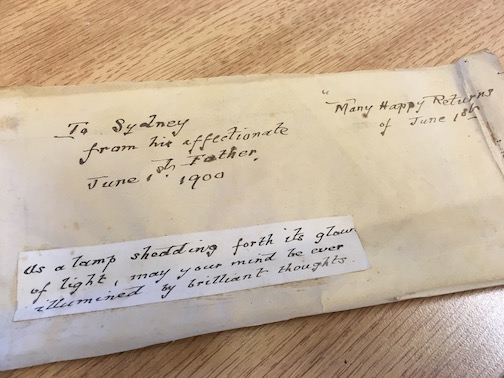 To Sydney
from his affectionate
Father.
June 1st, 1900
"Many Happy Returns
of June 1st
As a lamp shedding forth its glow
of light, may your mind be ever
illumined by brilliant thoughts.